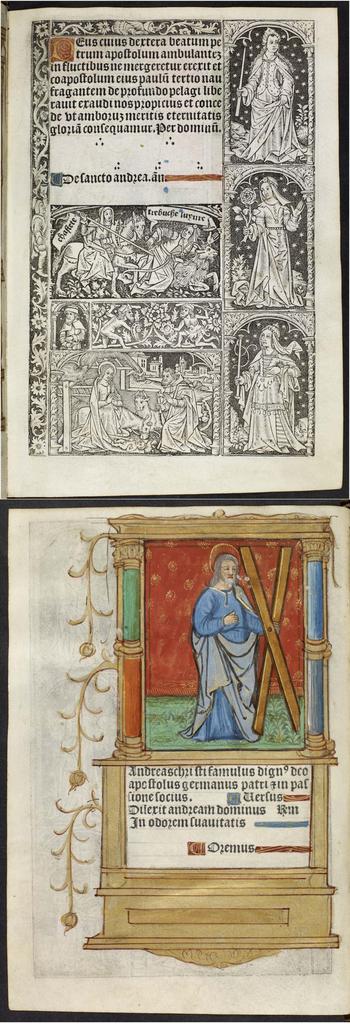 Deus cuius dextera beatum pe
trum apostolum ambulantez
in fluctibus ne mergeretur erexit et
coapostolum eius paulū tertio nau
fragantem de profundo pelagi libe
rauit exaudi nos propicius et conce
de vt amboruz meritis eternitatis
gloriā consequamur. Per dominū.
De sancto andrea. añ
chastete
trebuche luxure
Andreas chri sti famulus dign⁹ deo
apostolus germanus patri ⁊ in pas
sione socius. Uersus
Dilexit andream dominus
In odorem suauitatis
Oremus